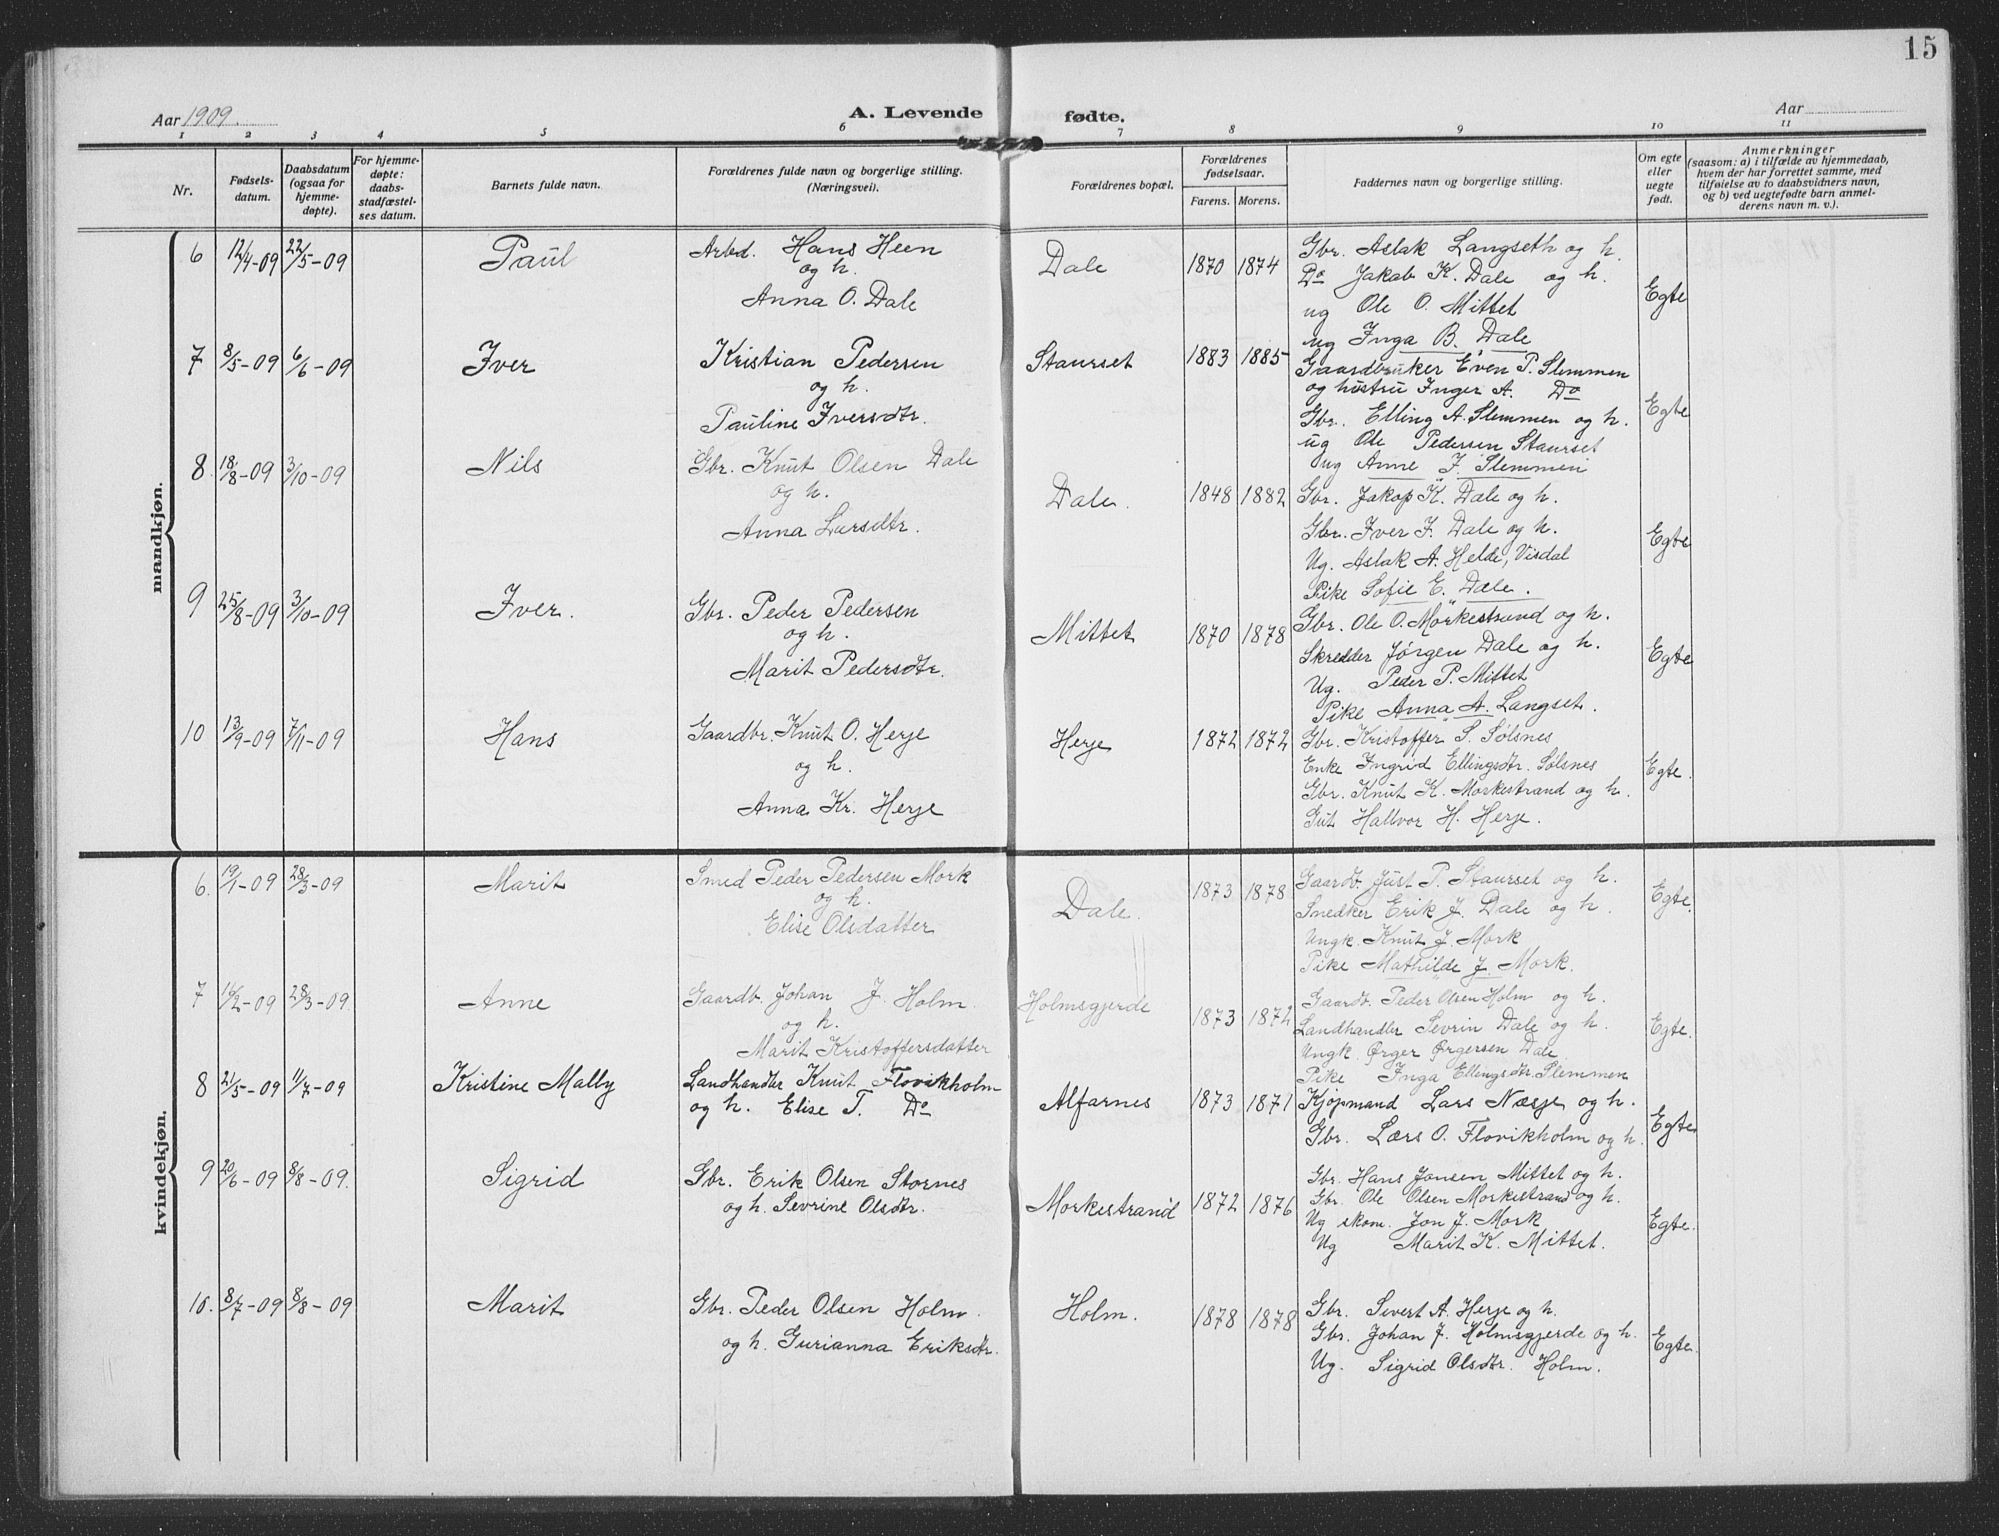 15
Aar 1909.
A. Levende fødte.
Aar
1 2 3 4 5 6 7 8 9 10 11
Nr.
Fødsels-
datum.
Daabsdatum
(ogsaa for
hjemme-
døpte).
For hjemme-
døpte:
daabs-
stadfæstel-
ses datum.
Barnets fulde navn.
Forældrenes fulde navn og borgerlige stilling.
(Næringsvei).
Forældrenes bopæl.
Forældrenes
fødselsaar.
Farens. Morens.
Faddernes navn og borgerlige stilling.
Om egte
eller
uegte
født.
Anmerkninger
(saasom: a) i tilfælde av hjemmedaab,
hvem der har forrettet samme, med
tilføielse av to daabsvidners navn,
og b) ved uegtefødte barn anmel-
derens navn m. v.).
mandkjøn.
6 12/4-09 22/5-09 Paul
Arbd. Hans Heen
og h.
Anna O. Dale
Dale 1870 1874
Gbr. Aslak Langseth og h.
Do Jakob K. Dale og h.
ug Ole O. Mittet
ug Inga B. Dale
Egte
7 8/5-09 6/6-09 Iver
Kristian Pedersen
og h.
Pauline Iversdtr.
Staurset 1883 1885
Gaardbruker Even P. Slemmen
og hustru Inger A. Do
Gbr. Elling A. Slemmen og h.
ug Ole Pedersen Staurset
ug Anne J. Slemmen
Egte
8. 18/8-09 3/10-09 Nils
Gbr. Knut Olsen Dale
og h.
Anna Larsdtr.
Dale. 1848 1882
Gbr. Jakop K. Dale og h.
Gbr. Iver J. Dale og h.
Ug. Aslak A. Helde, Visdal
Pike Sofie E. Dale.
Egte
9 25/8-09 3/10-09 Iver.
Gbr. Peder Pedersen
og h.
Marit Pedersdtr.
Mittet 1870 1878
Gbr. Ole O. Morkestrand og h.
Skredder Jørgen Dale og h.
Ug. Peder P. Mittet
Pike Anna A. Langset.
Egte
10 13/9-09 7/11-09 Hans
Gaardbr. Knut O. Herje
og h.
Anna Kr. Herje
Herje 1872 1872
Gbr. Kristoffer S. Sølsnes
Enke Ingrid Ellingsdtr. Sølsnes
Gbr. Knut K. Morkestrand og h.
Gut Hallvor H. Herje.
Egte.
kvindekjøn.
6. 19/1-09 28/3-09 Marit
Smed Peder Pedersen Mork
og h.
Elise Olsdatter
Dale. 1873 1878
Gaardb. Just P. Staurset og h.
Snedker Erik J. Dale og h.
Ungk. Knut J. Mork
Pike Mathilde J. Mork.
Egte.
7 16/2-09 28/3-09. Anne
Gaardb. Johan J. Holm
og h.
Marit Kristoffersdatter
Holmsgjerde 1873 1872
Gaardb. Peder Olsen Holm og h.
Landhandler Sevrin Dale og h.
Ungk. Ørger Ørgersen Dale
Pike Inga Ellingsdtr. Slemmen
Egte.
8 21/5-09 11/7-09 Kristine Mally
Landhandler Knut Flovikholm
og h. Elise T. Do
Alfarnes 1873 1871
Kjøpmand Lars Næsje og h.
Gbr. Lars O. Flovikholm og h
Egte.
9 20/6-09 8/8-09. Sigrid
Gbr. Erik Olsen Stornes
og h. Sevrine Olsdtr.
Morkestrand 1872 1876
Gbr. Hans Jonsen Mittet og h.
Gbr. Ole Olsen Morkestrand og h.
Ug skom. Jon J. Mork
Ug Marit K. Mittet.
Egte.
10. 8/7-09 8/8-09 Marit
Gbr. Peder Olsen Holm.
og h. Gurianna Eriksdtr.
Holm. 1878 1878
Gbr. Sivert A. Herje og h.
Gbr. Johan J. Holmsgjerde og h.
Ug. Sigrid Olsdtr. Holm.
Egte.